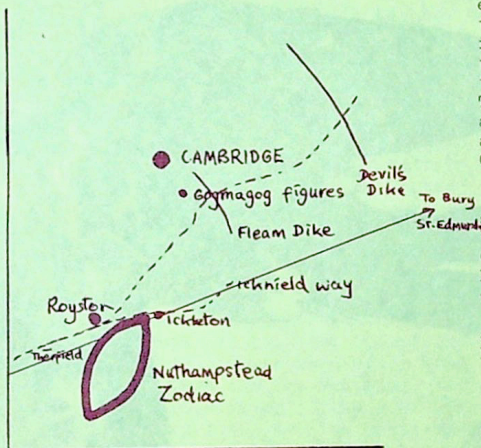 CAMBRIDGE
Gogmagog figures
Devil's
Dike
To Bury
St. Edmunds
Fleam Dike
Icknield way
Royston
Ickleton
Therfield
Nuthampstead
Zodiac